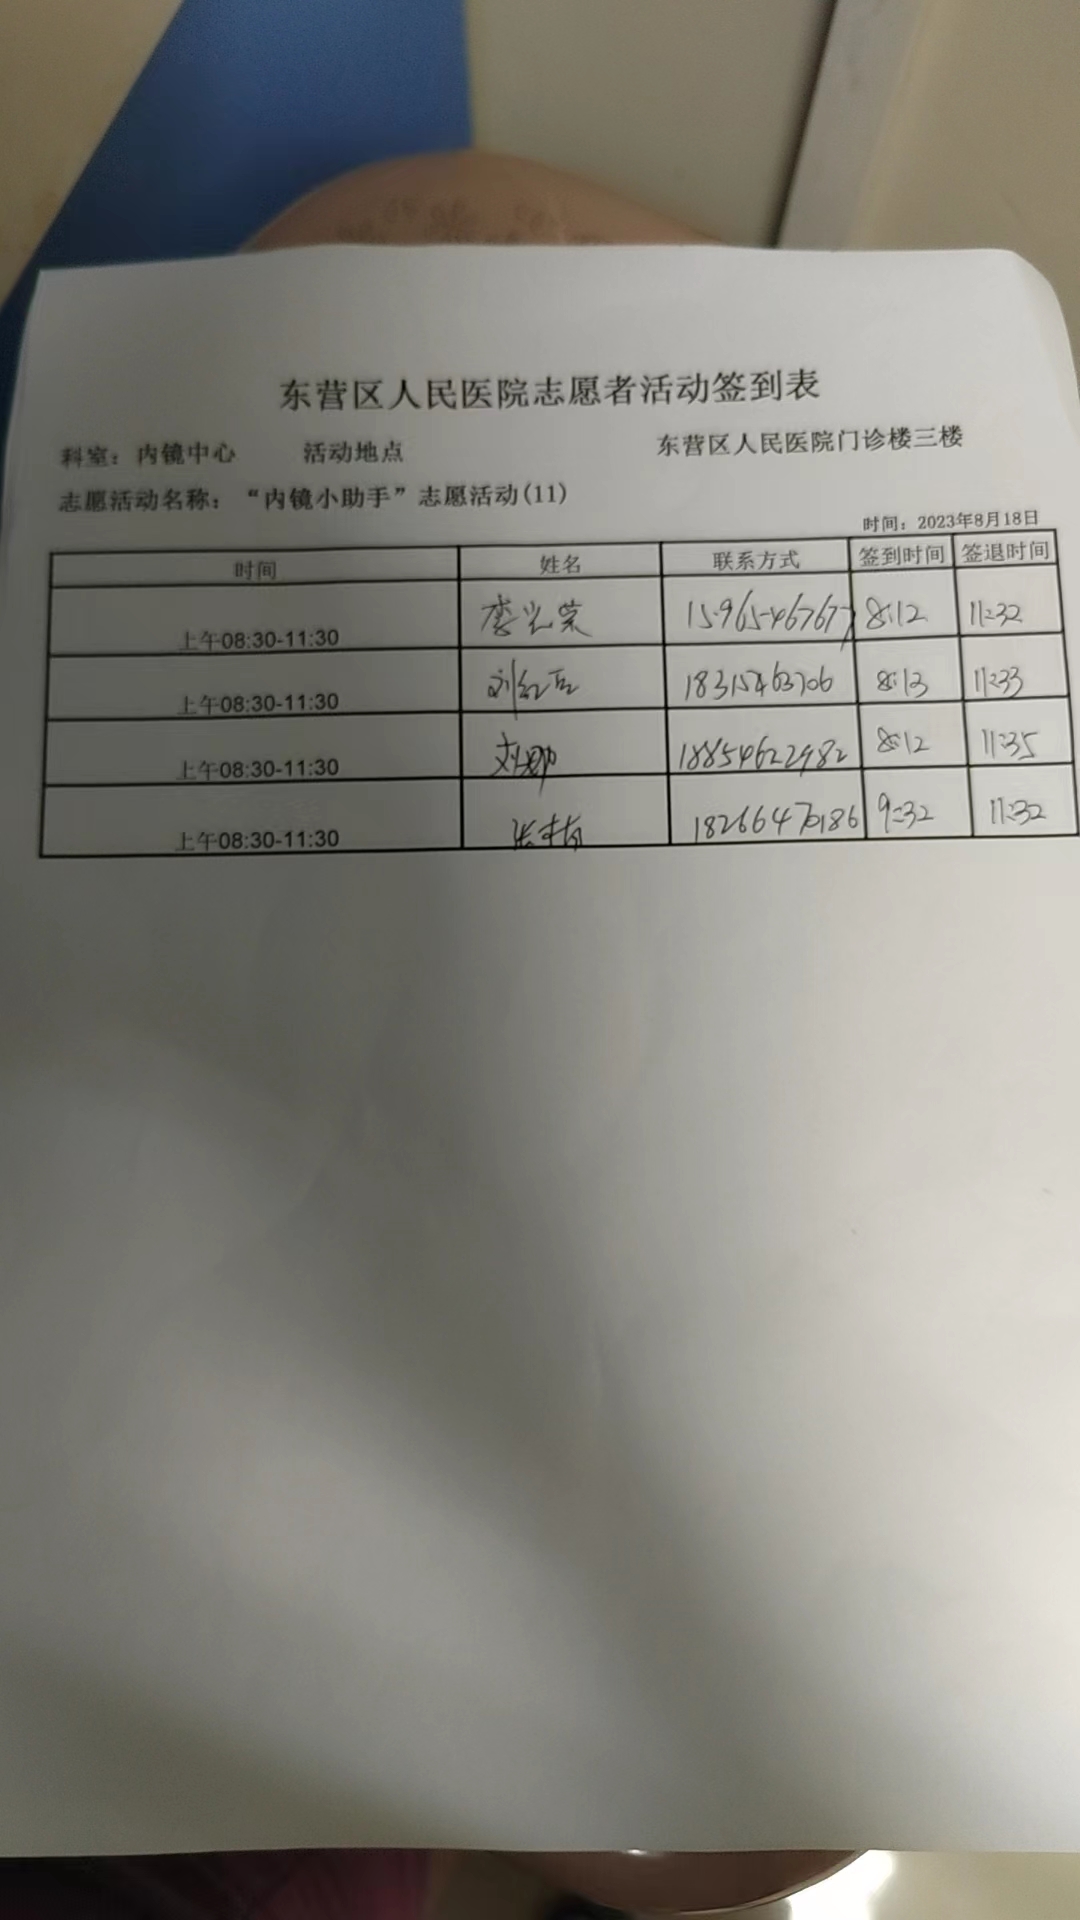 东营区人民医院志愿者活动签到表
科室：内镜中心 活动地点 东营区人民医院门诊楼三楼
志愿活动名称：“内镜小助手”志愿活动(11)
时间：2023年8月18日
时间 姓名 联系方式 签到时间 签退时间
上午08:30-11:30 李光荣 15965467677 8:12 11:32
上午08:30-11:30 刘红 18315463706 8:13 11:33
上午08:30-11:30 18854622982 8:12 11:35
上午08:30-11:30 张 18266470186 9:32 11:32